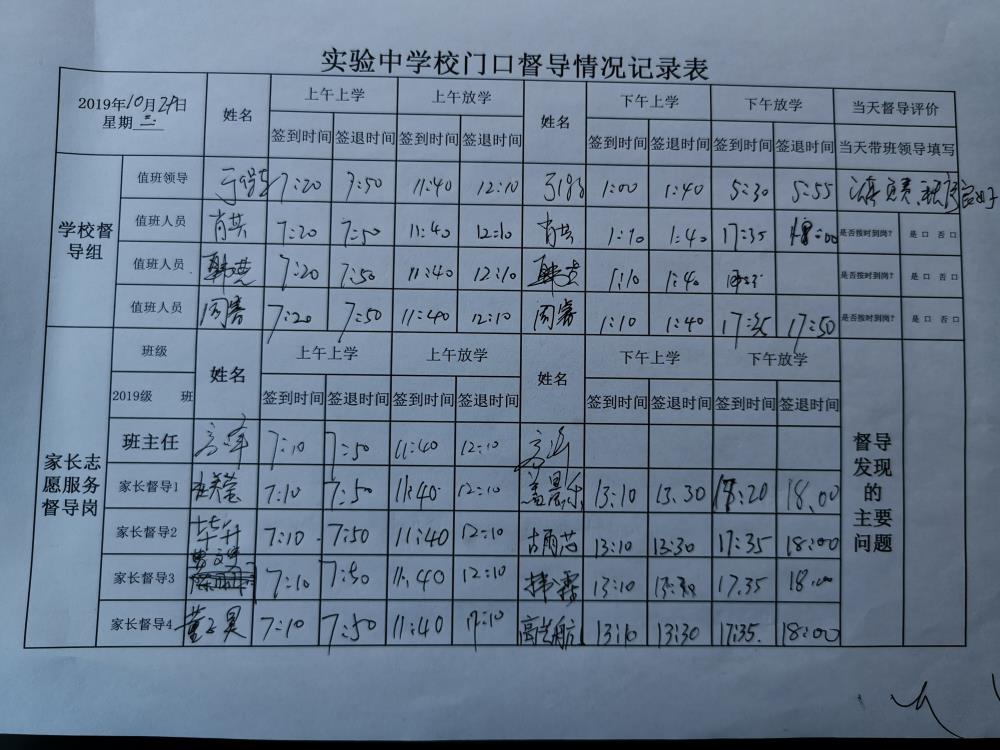 实验中学校门口督导情况记录表
2019年10月29日
星期二
姓名 上午上学 上午放学 姓名 下午上学 下午放学 当天督导评价
签到时间 签退时间 签到时间 签退时间 签到时间 签退时间 签到时间 签退时间 当天带班领导填写
学校督导组
值班领导 7:20 7:50 11:40 12:10 1:00 1:40 5:30 5:55
值班人员 肖共 7:20 7:50 11:40 12:10 肖共 1:10 1:40 17:35 18:00 是否按时到岗? 是口 否口
值班人员 7:20 7:50 11:40 12:10 1:10 1:40 是否按时到岗? 是口 否口
值班人员 周睿 7:20 7:50 11:40 12:10 周睿 1:10 1:40 17:35 17:50 是否按时到岗? 是口 否口
家长志愿服务督导岗
班级 姓名 上午上学 上午放学 姓名 下午上学 下午放学
2019级 班 签到时间 签退时间 签到时间 签退时间 签到时间 签退时间 签到时间 签退时间
督导发现的主要问题
班主任 7:10 7:50 11:40 12:10
家长督导1 7:10 7:50 11:40 12:10 13:10 13.30 18:20 18.00
家长督导2 毕升 7:10 7:50 11:40 12:10 13:10 13:30 17:35 18:00
家长督导3 7:10 7:50 11:40 12:10 韩霖 13:10 13:30 17.35 18:00
家长督导4 董子昊 7:10 7:50 11:40 12:10 高艺航 13:10 13:30 17:35. 18:00